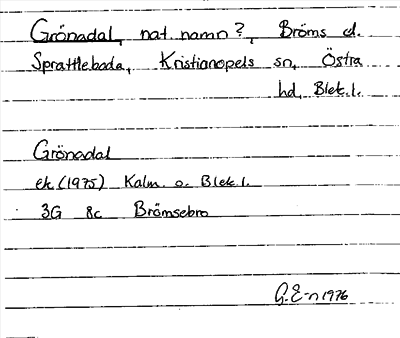 Grönadal, nat. namn?, Bröms d.
Sprattleboda, Kristianopels sn, Östra
hd, Blek.l.
Grönadal
ek. (1975) Kalm. o. Blek.l.
3G 8c Brömsebro
G.E-n 1976